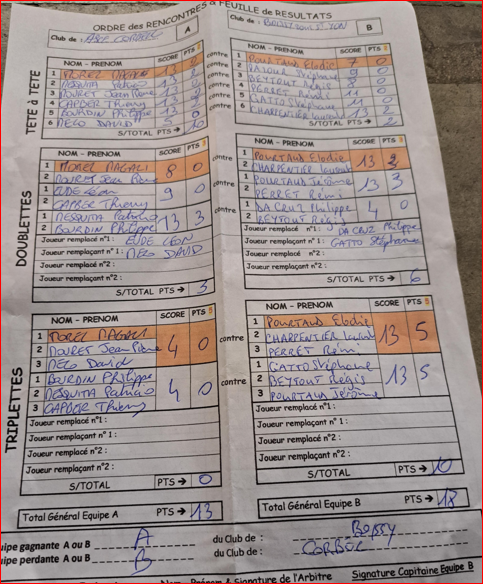 ORDRE des RENCONTRES & FEUILLE de RESULTATS
Club de : A
Club de : B
TETE à TETE
NOM - PRENOM SCORE PTS contre NOM - PRENOM SCORE PTS
1 MOREL MAGALI 13 2 1 POURTAUD Elodie 7 0
2 MESQUITA 13 2 Stéphane 0
3 MOURET Jean Pierre 13 2 3 BEYTOUT Régis 0
4 CAPDER Thierry 13 2 contre 4 PERRET Rémi 0
5 BOURDIN Philippe 13 2 contre 5 GATTO Stéphane 11 0
6 MELO DAVID 0 contre 6 CHARPENTIER 13 2
S/TOTAL PTS → 10 S/TOTAL PTS → 2
DOUBLETTES
NOM - PRENOM SCORE PTS NOM - PRENOM SCORE PTS
1 MOREL MAGALI 8 0 contre 1 POURTAUD Elodie 13 3
2 MOURET Jean 2 CHARPENTIER
1 EUDE Léon 9 0 contre 1 POURTAUD Jérôme 13 3
2 CAPDER Thierry 2 PERRET Rémi
1 MESQUITA 13 3 contre 1 DA CRUZ Philippe 4 0
2 BOURDIN Philippe 2 BEYTOUT Régis
Joueur remplacé n°1 : EUDE LEON Joueur remplacé n°1 : DA CRUZ Philippe
Joueur remplaçant n°1 : MELO DAVID Joueur remplaçant n°1 : GATTO Stéphane
Joueur remplacé n°2 : Joueur remplacé n°2 :
Joueur remplaçant n°2 : Joueur remplaçant n°2 :
S/TOTAL PTS → 3 S/TOTAL PTS → 6
TRIPLETTES
NOM - PRENOM SCORE PTS NOM - PRENOM SCORE PTS
1 MOREL MAGALI 4 0 contre 1 POURTAUD Elodie 13 5
2 MOURET Jean Pierre 2 CHARPENTIER
3 MELO David 3 PERRET Rémi
1 BOURDIN Philippe 4 0 contre 1 GATTO Stéphane 13 5
2 MESQUITA 2 BEYTOUT Régis
3 CAPDER Thierry 3 POURTAUD Jérôme
Joueur remplacé n°1 : Joueur remplacé n°1 :
Joueur remplaçant n°1 : Joueur remplaçant n°1 :
Joueur remplacé n°2 : Joueur remplacé n°2 :
Joueur remplaçant n°2 : Joueur remplaçant n°2 :
S/TOTAL PTS → 0 S/TOTAL PTS → 10
Total Général Equipe A PTS → 13 Total Général Equipe B PTS → 18
uipe gagnante A ou B A du Club de :
uipe perdante A ou B B du Club de :
Prénom & Signature de l'Arbitre Signature Capitaine Equipe B